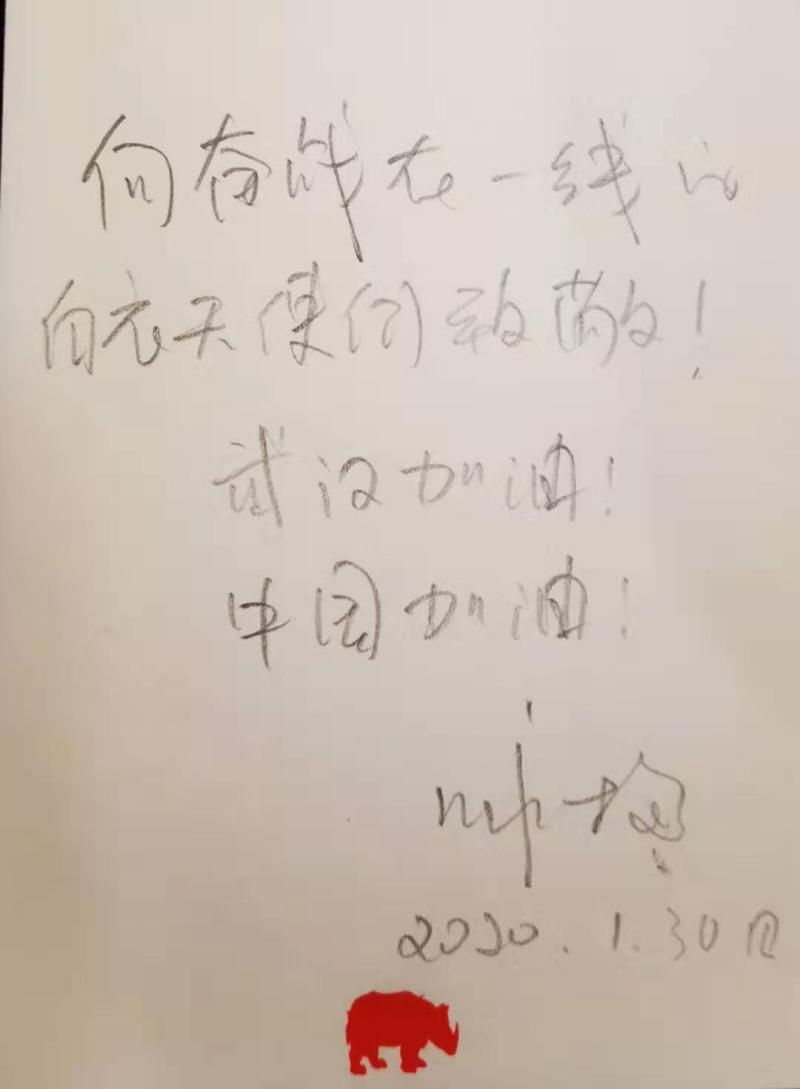 向奋战在一线的
白衣天使们致敬！
武汉加油！
中国加油！
2020.1.30日